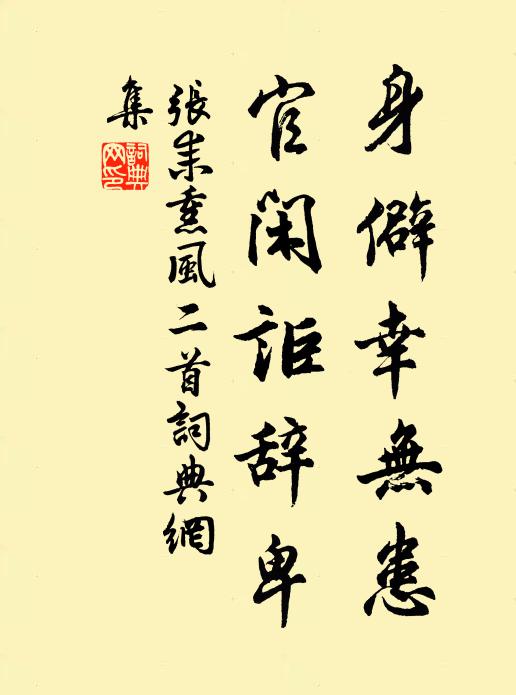 身僻幸無患
官閑詎辞卑
張耒熏風二首詞典網
集
詞典網印